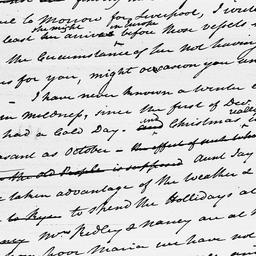 to Morrow for Liverpool, I
she might in season
least her arrival before those vessels
the Circumstance of her not having
for you, might occasion you
— I have never known a winter
in mildness, since the first of Dec
and really
had a Cold Day. and Christmas
as October — the effect of such
the old People is supposed Aunt Jay
taken advantage of the weather &
to Rye to spend the Hollidays at
Mrs. Ridley & Nancy are at
poor Maria we have not